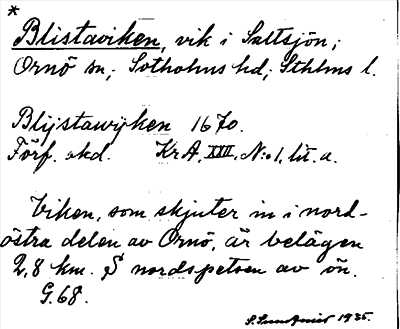 *
Blistaviken, vik i Saltsjön;
Ornö sn; Sotholms hd; Sthlms l.
Blijstawijken 1670.
Förf. okd. KrA. XXII. N:o 1. lit. a.
Viken, som skjuter in i nord-
östra delen av Ornö, är belägen
2,8 km. S nordspetsen av ön.
G.68.
S. Sundqvist 1935.